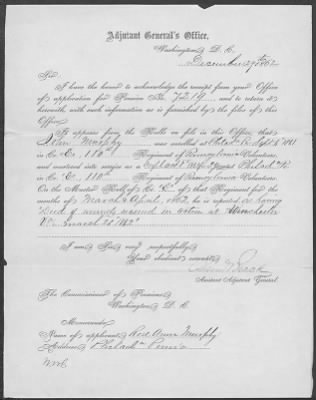 Adjutant General's Office,
Washington, D. C.
December 29th 1862
Sir:
I have the honor to acknowledge the receipt from your Office
of application for Pension No. 7219, and to return it
herewith, with such information as is furnished by the files of this
Office.
It appears from the Rolls on file in this Office, that
John Murphy was enrolled at Philad
in Co. E, 110th Regiment of Pennsylvania Volunteers,
and mustered into service as a
in Co. E, 110th Regiment of Pennsylvania Volunteers.
On the Muster Roll of Co. E of that Regiment for the
months of March & April, 1862, he is reported as having
"Died of wounds received in action at Winchester
Va. March 1862"
I am, Sir, very respectfully,
Your obedient servant,
Assistant Adjutant General.
The Commissioner of Pensions,
Washington, D. C.
Memoranda:
Name of applicant, Rose Ann Murphy
Address, Philada Penna